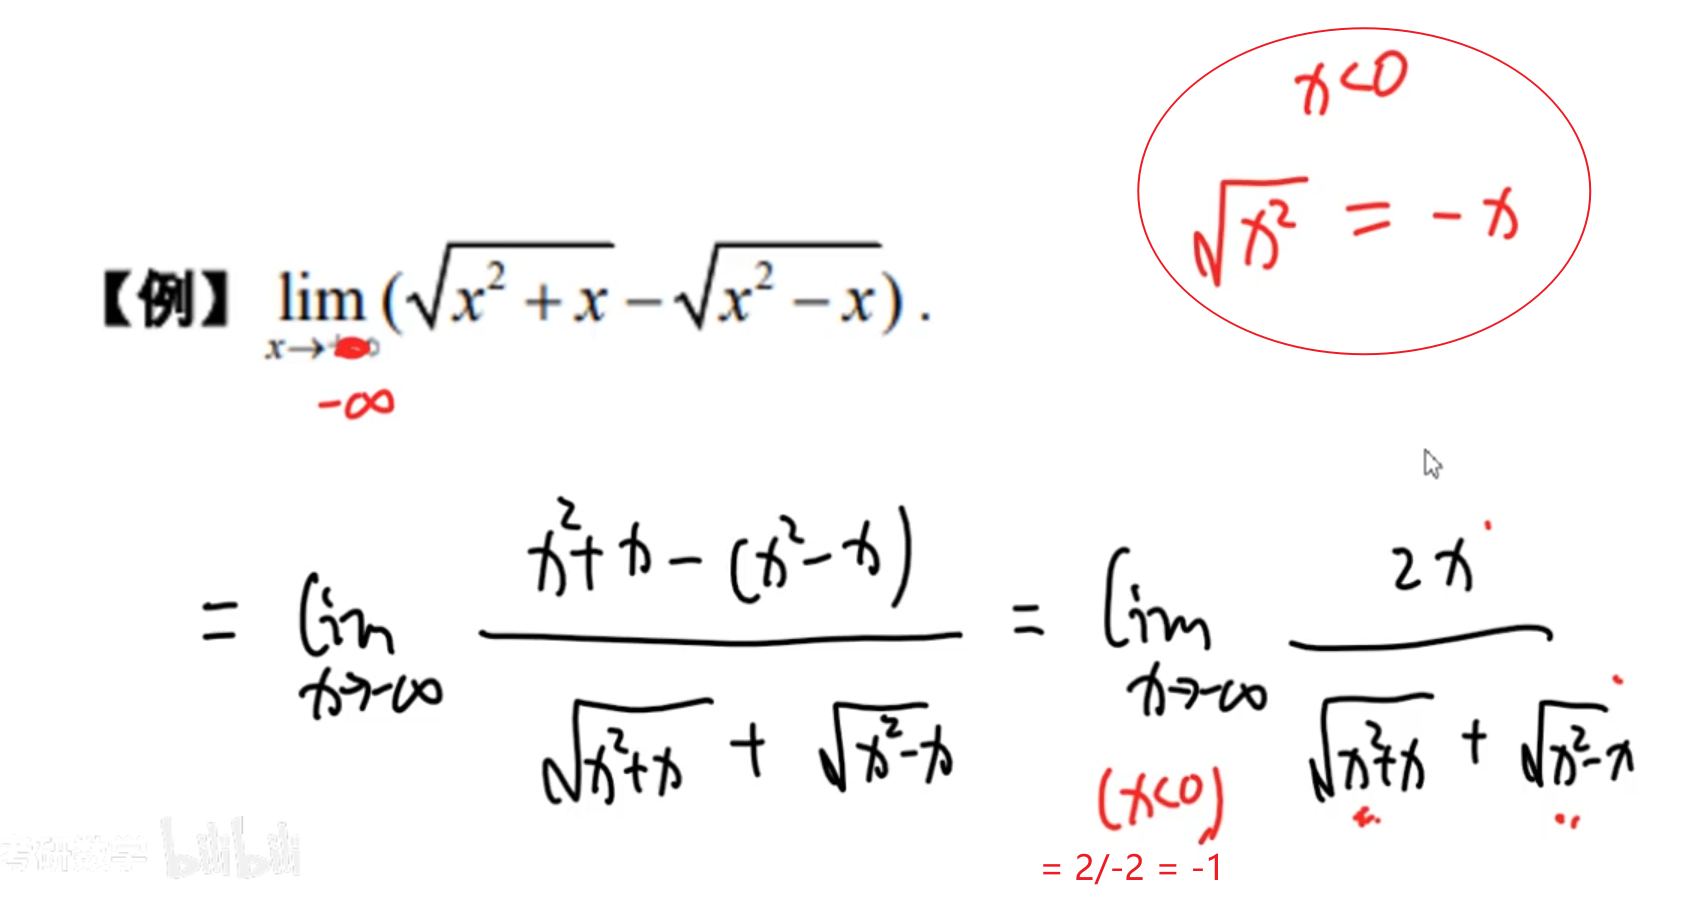 x<0
√x² = -x
【例】 lim (√x² + x - √x² - x) .
x→
-∞
= lim x→-∞ x²+x-(x²-x) / √x²+x + √x²-x = lim x→-∞ 2x / √x²+x + √x²-x
(x<0)
考研数学 bilibili
= 2/-2 = -1